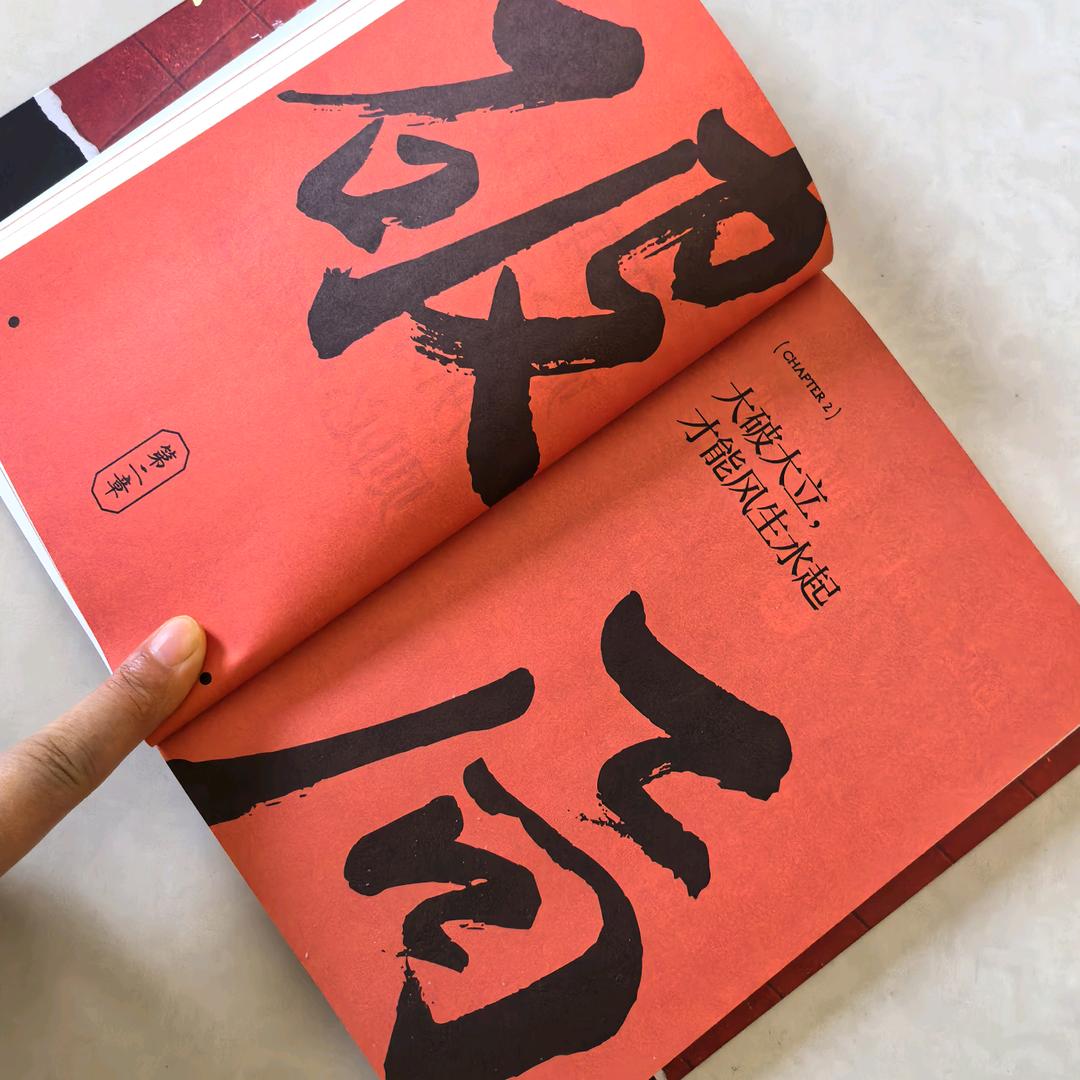 破局
第二章
( CHAPTER 2 )
大破大立，
才能风生水起